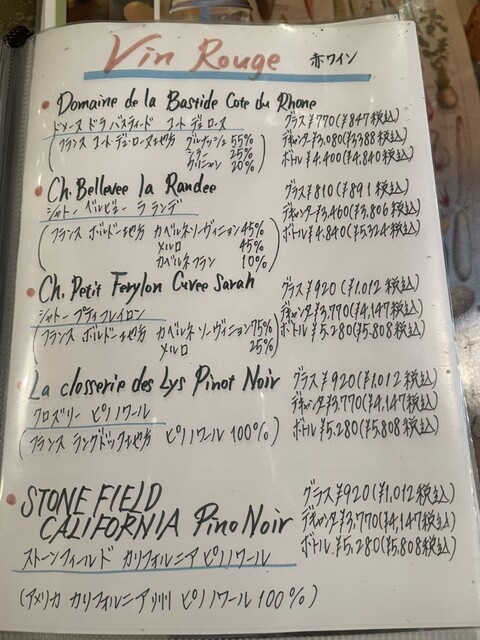 Vin Rouge 赤ワイン
Domaine de la Bastide Cote du Rhone
ドメーヌ ドラ バスティード コート デュ ローヌ
グラス ¥770(¥847税込)
デキャンタ¥3,080(¥3388税込)
ボトル ¥4,400(¥4,840税込)
(フランス コート・デュ・ローヌ地方 グルナッシュ 55%
シラー 25%
20%)
Ch. Bellevee la Randee
シャトー ベルビュー ラ ランデ
グラス¥810(¥891税込)
デキャンタ¥3,460(¥3,806税込)
ボトル ¥4,840(¥5324税込)
(フランス ボルドー地方 カベルネソーヴィニョン45%
メルロ 45%
カベルネフラン 10%)
Ch. Petit Ferylon Cuvee Sarah
シャトー プティフレイロン
グラス¥920(¥1,012税込)
デキャンタ¥3,770(¥4,147税込)
ボトル ¥5,280(¥5,808税込)
(フランス ボルドー地方 カベルネソーヴィニョン75%
メルロ 25%)
La closserie des Lys Pinot Noir
クロズリー ピノノワール
グラス ¥920(¥1,012税込)
デキャンタ¥3,770(¥4,147税込)
ボトル ¥5,280(¥5,808税込)
(フランス ラングドック地方 ピノノワール 100%)
STONE FIELD
CALIFORNIA Pino Noir
ストーンフィールド カリフォルニア ピノノワール
グラス¥920(¥1,012税込)
デキャンタ¥3,770(¥4,147税込)
ボトル¥5,280(¥5,808税込)
(アメリカ カリフォルニア州 ピノノワール 100%)